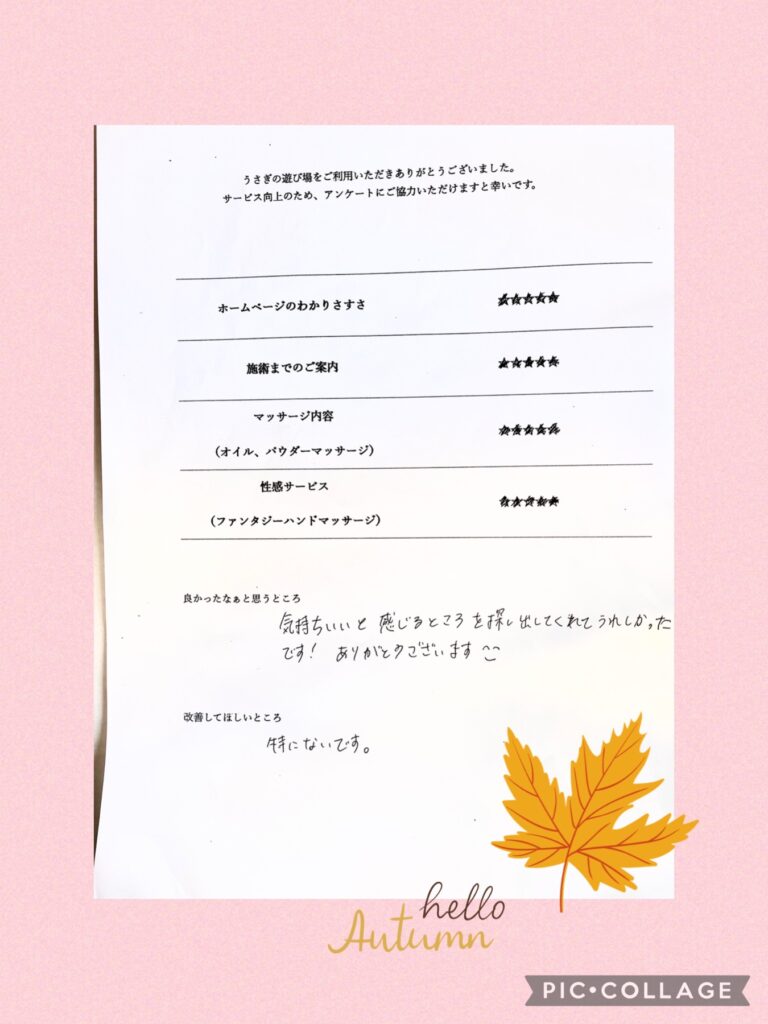 うさぎの遊び場をご利用いただきありがとうございました。
サービス向上のため、アンケートにご協力いただけますと幸いです。
ホームページのわかりさすさ
★★★★★
施術までのご案内
★★★★★
マッサージ内容
（オイル、パウダーマッサージ）
★★★★★
性感サービス
（ファンタジーハンドマッサージ）
★★★★★
良かったなぁと思うところ
気持ちいいと感じるところを探し出してくれてうれしかった
です！ ありがとうございます
改善してほしいところ
特にないです。
hello
Autumn
PIC•COLLAGE